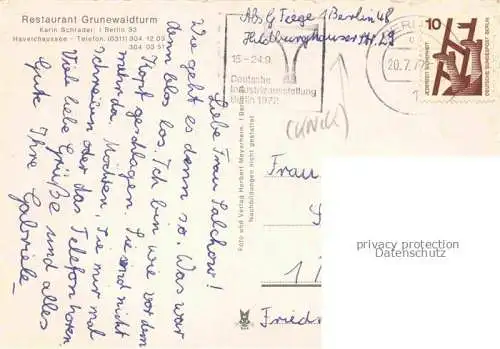 Restaurant Grunewaldturm
Karin Schrader, 1 Berlin 93
Havelchaussee - Telefon (0311) 304 12 03
304 03 51
Liebe Frau Salchow!
Wie geht es denn so. Was war
denn blos los. Ich bin wie vor dem
Kopf geschlagen. Sie sind nicht
mehr da. Möchten Sie nur mal
schreiben oder das Telefon hören.
Viele liebe Grüße und alles
Gute Ihre Gabriele
Foto und Verlag Herbert Meyerheim, 1 Berlin
Nachbildungen nicht gestattet
Abs G. Tiege 1 Berlin 48
Hildburghauser Str. 29
15.-24.9.
Deutsche
Industrieausstellung
Berlin 1972
20.7.72
1
10
JEDERZEIT SICHERHEIT
DEUTSCHE BUNDESPOST BERLIN
(KNICK)
Frau
S
1
Fried
privacy protection
Datenschutz